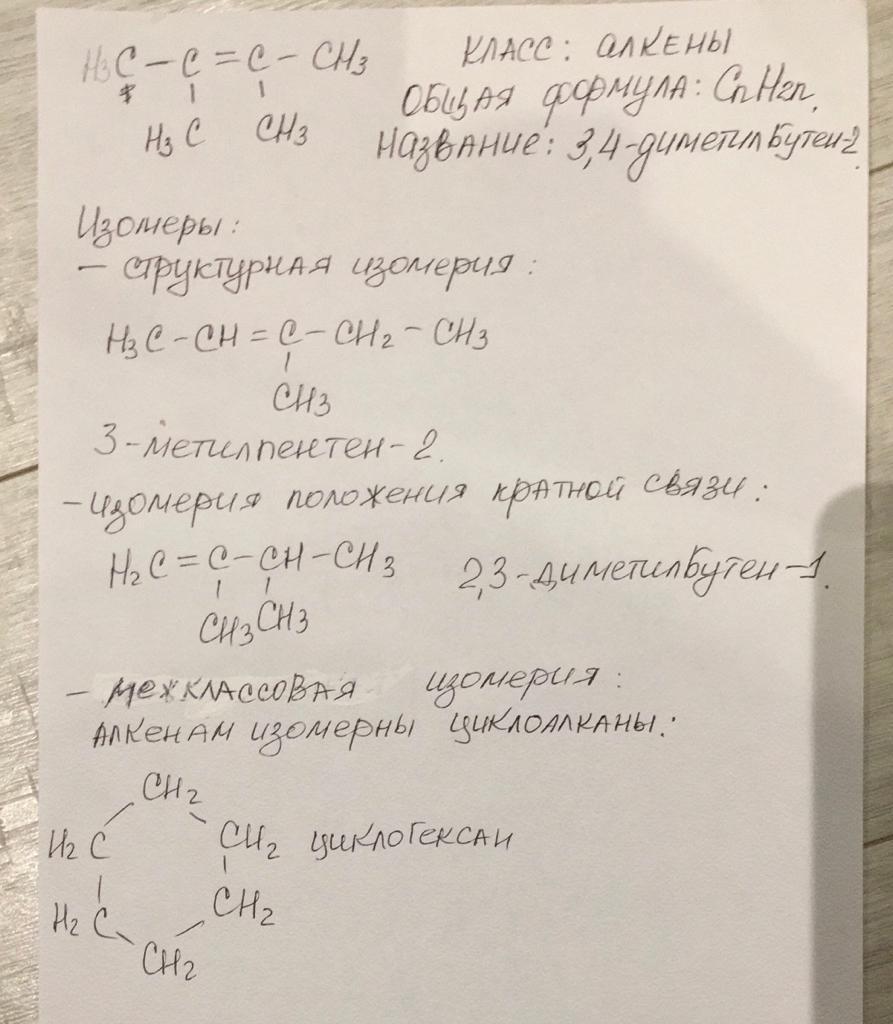 H3C – C = C – CH3
H3C CH3
КЛАСС: АЛКЕНЫ
ОБЩАЯ ФОРМУЛА: CnH2n,
НАЗВАНИЕ: 3,4-диметилбутен-2
Изомеры:
– структурная изомерия:
H3C – CH = C – CH2 – CH3
CH3
3-метилпентен-2.
– изомерия положения кратной связи:
H2C = C – CH – CH3
CH3 CH3
2,3-диметилбутен-1.
– межклассовая изомерия:
АЛКЕНАМ изомерны циклоалканы:
CH2
H2C CH2 циклогексан
H2C CH2
CH2